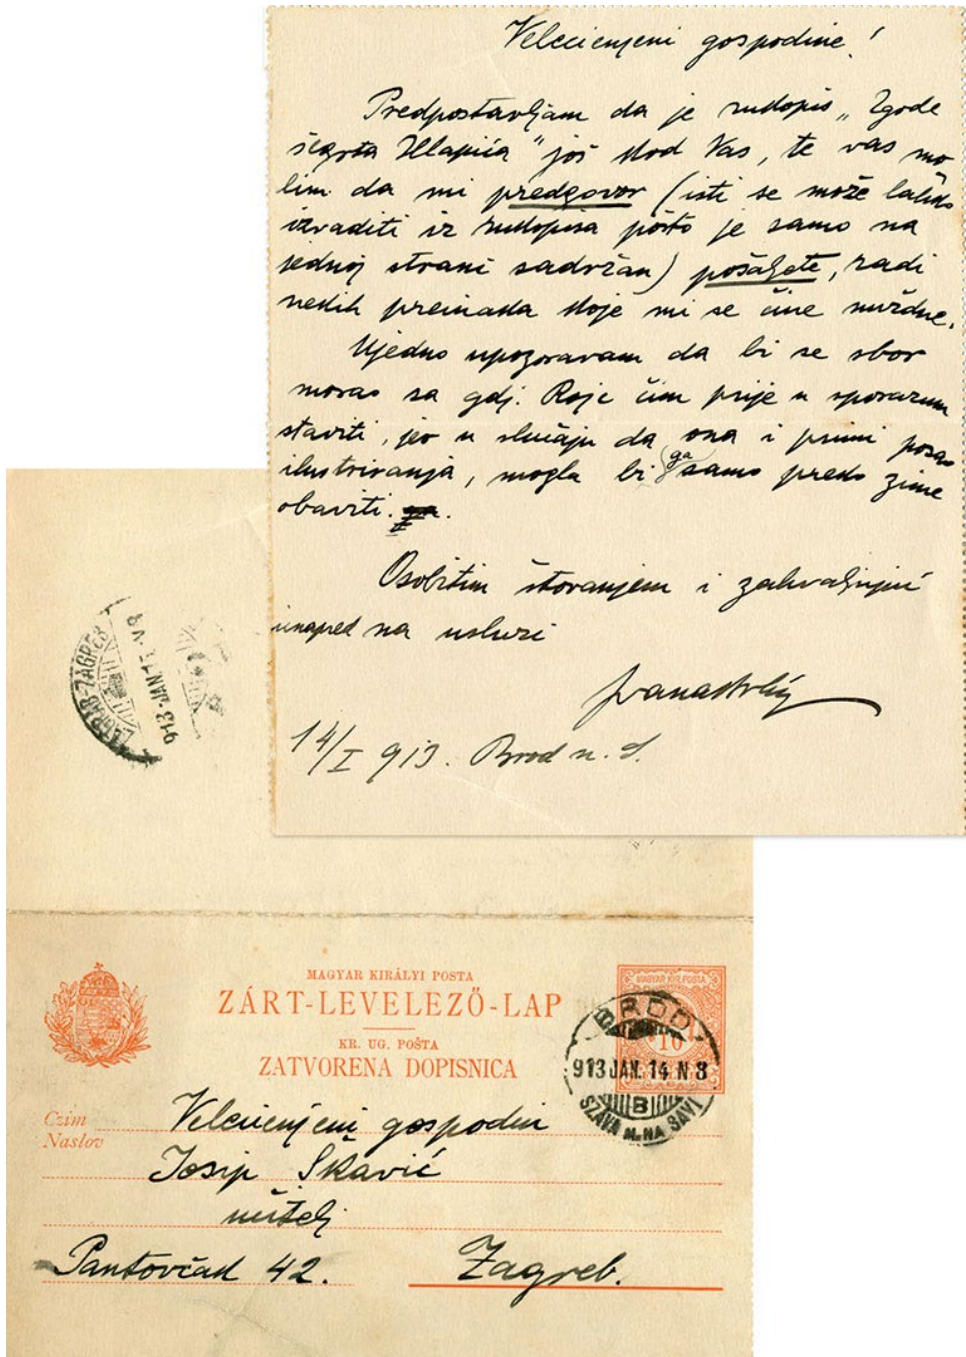 Velecijenjeni gospodine!
Predpostavljam da je rukopis „Zgode
šegrta Hlapića" još kod Vas, te vas mo
lim da mi predgovor (isti se može lahko
izvaditi iz rukopisa pošto je samo na
jednoj strani sadržan) pošaljete, radi
nekih preinaka koje mi se čine nuždne.
Ujedno upozoravam da bi se zbor
morao sa gdj. Roje čim prije u sporazum
staviti, jer u slučaju da ona i primi posao
ilustriranja, mogla bi ga samo preko zime
obaviti.
Osobitim štovanjem i zahvaljujuć
unapred na usluzi
14/I 913. Brod n. S.
ZAGRAB-ZAGREB
913 JAN
MAGYAR KIRÁLYI POSTA
ZÁRT-LEVELEZŐ-LAP
KR. UG. POŠTA
ZATVORENA DOPISNICA
MAGYAR KIR. POSTA
10
BROD
913 JAN. 14 N 8
B
SZÁVA M. NA SAVI
Czim
Naslov
Velecijenjeni gospodin
Josip Škavić
učitelj
Pantovčak 42. Zagreb.